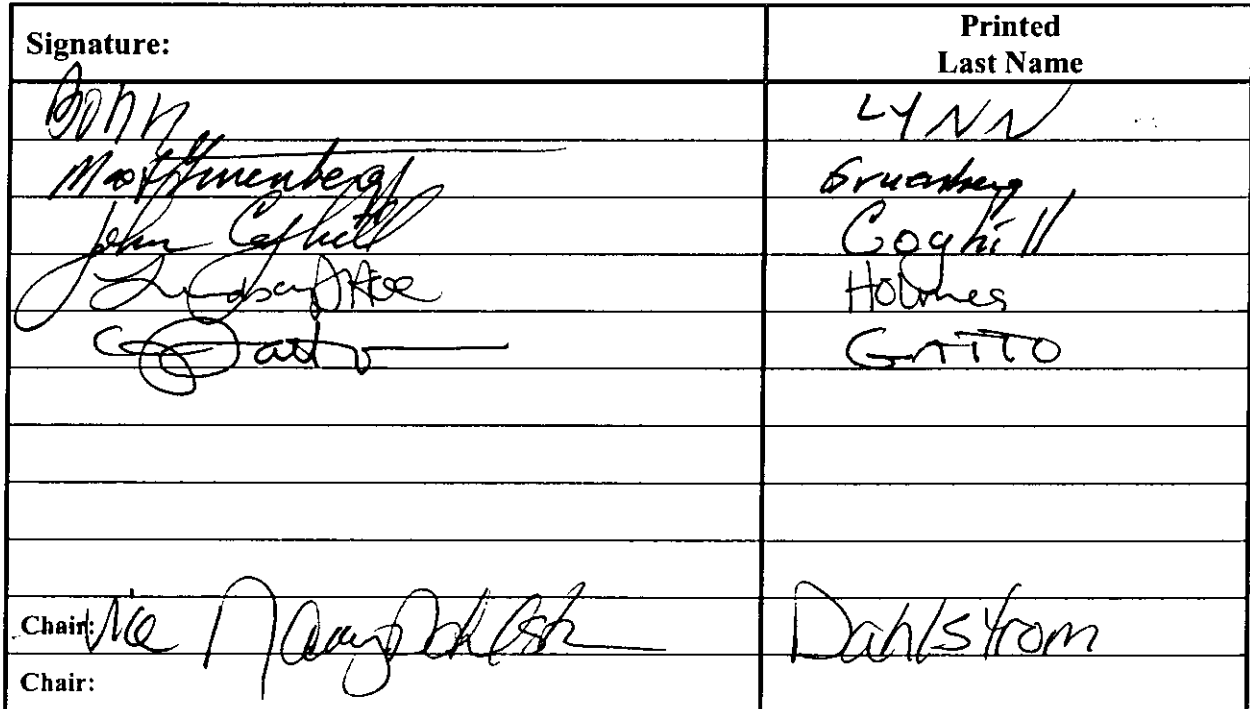 Signature: Printed Last Name
Bo LYNN
Max Gruenberg Gruenberg
John Coghill Coghill
Lindsay Holmes
Gatto GATTO
Chair: Vice Nancy Dahlstrom
Chair: